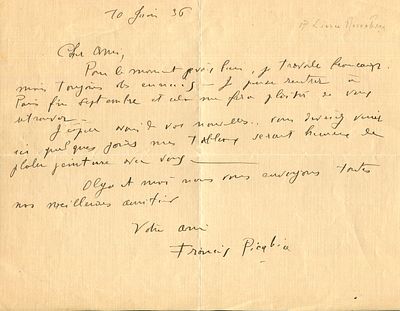 10 Juin 36
P. Lièvre
Cher ami,
Pour le moment pas à Paris, je travaille beaucoup
mais toujours des ennuis — Je pense rentrer à
Paris fin septembre et cela me fera plaisir de vous
retrouver —
J'espère avoir de vos nouvelles.. vous devriez venir
ici quelques jours mes tableaux seront heureux de
parler peinture avec vous —
Olga et moi nous vous envoyons toutes
nos meilleures amitiés
Votre ami
Francis Picabia